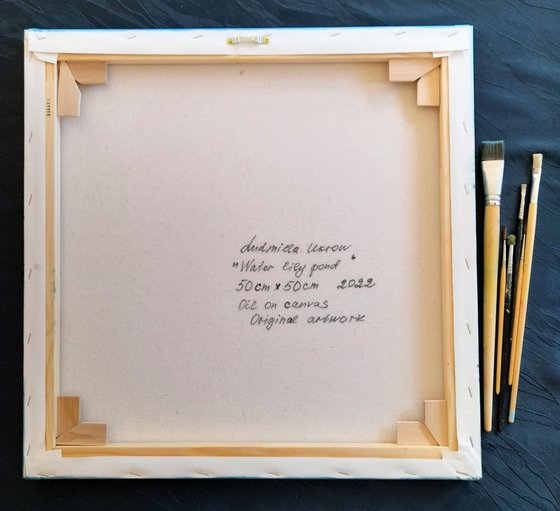 Ludmilla Ukrow
"Water lily pond"
50cm x 50cm 2022
Oil on canvas
Original artwork